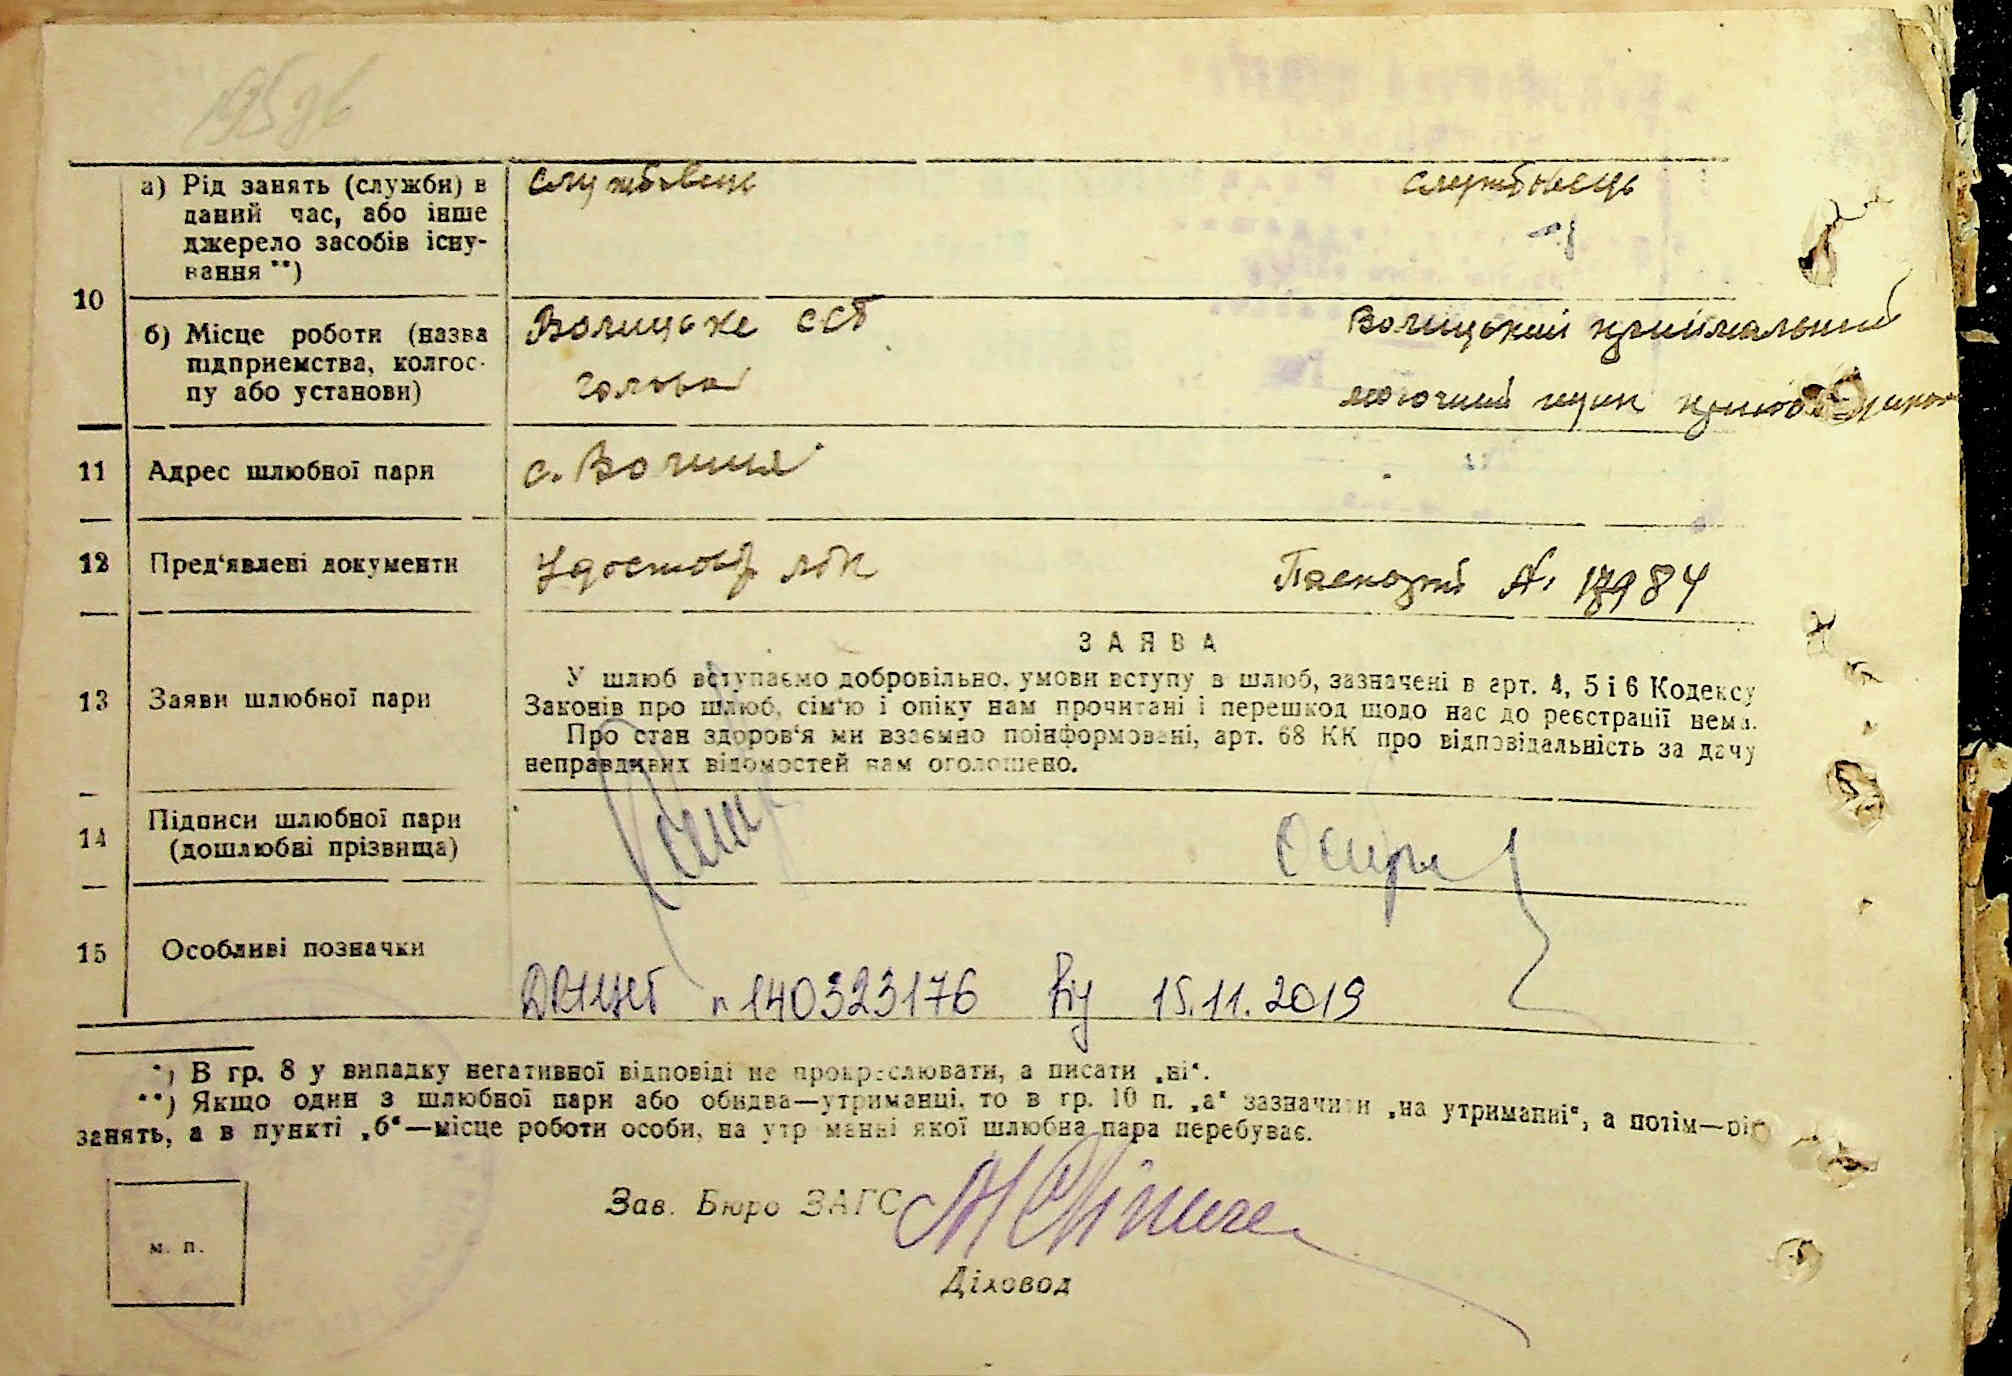 а) Рід занять (служби) в
даний час, або інше
джерело засобів існу-
вання **)
службовець
службовець
10
б) Місце роботи (назва
підприємства, колгос-
пу або установи)
Волицьке ССТ
голова
Волицький приймальний
пункт
11
Адрес шлюбної пари
с. Волиця
12
Пред'явлені документи
Удостов
Паспорт
13
Заяви шлюбної пари
ЗАЯВА
У шлюб вступаємо добровільно, умови вступу в шлюб, зазначені в арт. 4, 5 і 6 Кодексу
Законів про шлюб, сім'ю і опіку нам прочитані і перешкод щодо нас до реєстрації нема.
Про стан здоров'я ми взаємно поінформовані, арт. 68 КК про відповідальність за дачу
неправдивих відомостей нам оголошено.
14
Підписи шлюбної пари
(дошлюбні прізвища)
15
Особливі позначки
№ 140323176 від 15.11.2019
*) В гр. 8 у випадку негативної відповіді не прокреслювати, а писати „ні“.
**) Якщо один з шлюбної пари або обидва—утриманці, то в гр. 10 п. „а“ зазначити „на утриманні“, а потім—рід
занять, а в пункті „б“—місце роботи особи, на утриманні якої шлюбна пара перебуває.
Зав. Бюро ЗАГС
м. п.
Діловод